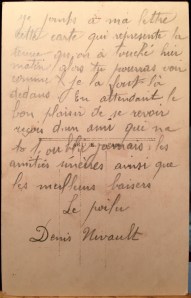 Je joinds à ma lettre
cette carte qui représente la
qu'on a touché hier
matin plus tu pourras voir
comme je la
dedans. En attendant le
bon plaisir de se revoir
reçois d'un ami que ne
t'oublie jamais les
amitiés sincères ainsi que
les meilleurs baisers
Le poilu
Denis Nivault